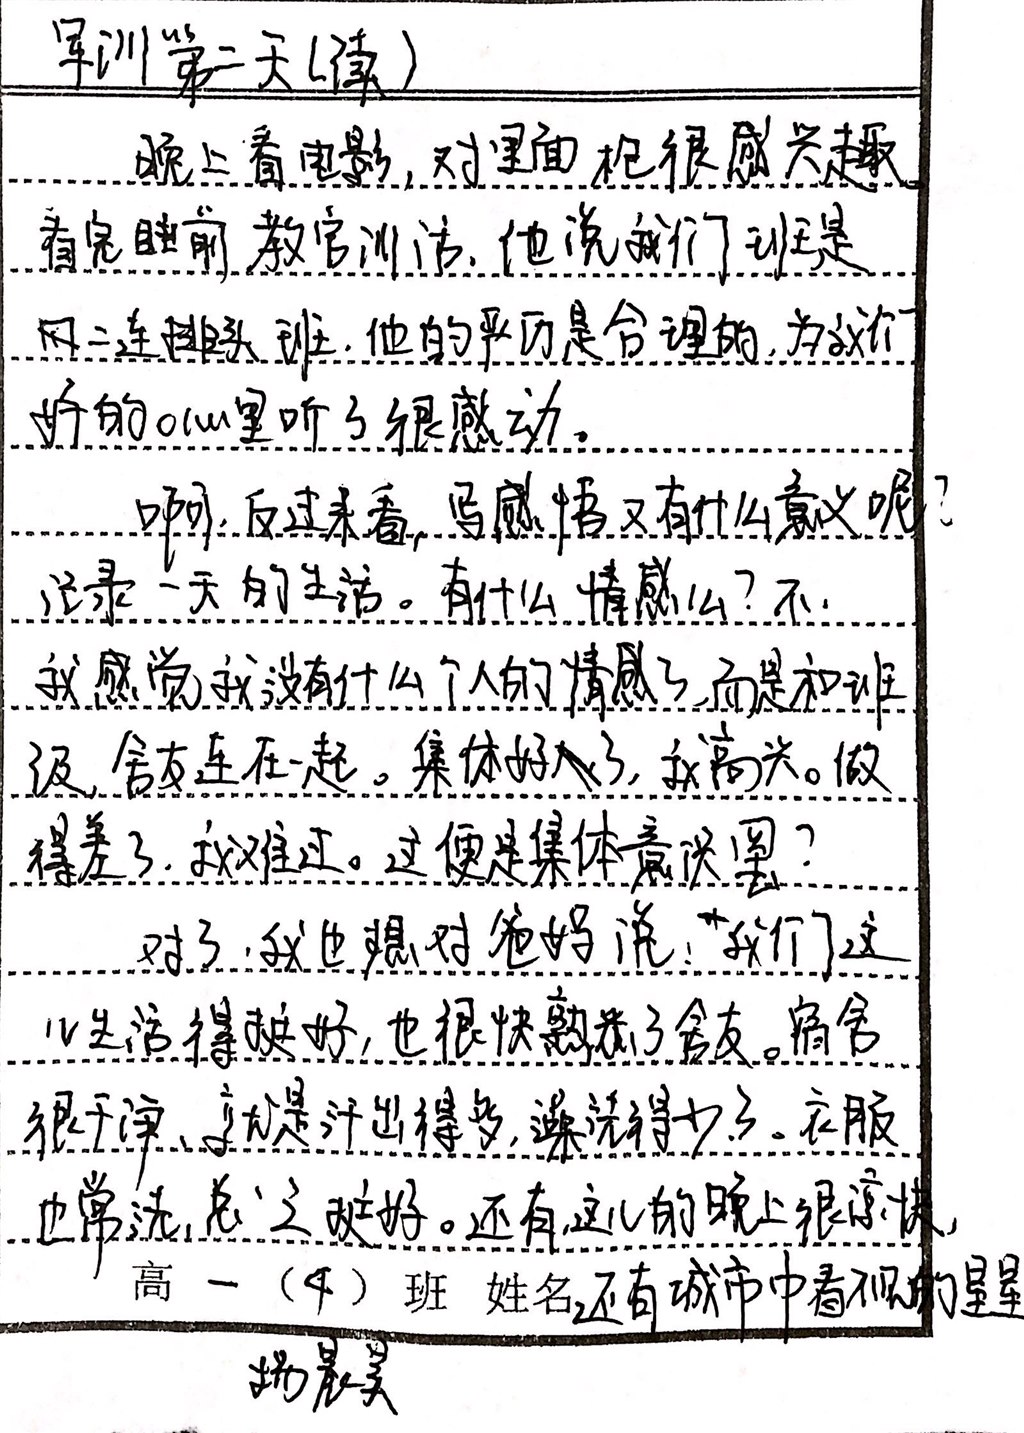 军训第二天(续)
晚上看电影,对里面枪很感兴趣
看完睡前,教官训话,他说我们班是
网二连排头班,他的严厉是合理的,为我们
好的。心里听了很感动。
啊,反过来看,写感悟又有什么意义呢?
记录一天的生活。有什么情感么?不,
我感觉我没有什么个人的情感了,而是和班
级,舍友连在一起。集体好了,我高兴。做
得差了,我难过。这便是集体意识罢?
对了,我也想对爸妈说:“我们这
儿生活得挺好,也很快熟悉了舍友。宿舍
很干净、就是汗出得多,澡洗得少了。衣服
也常洗,总之挺好。还有,这儿的晚上很凉快,
高一(4)班 姓名 还有城市中看不见的星星
杨晨昊